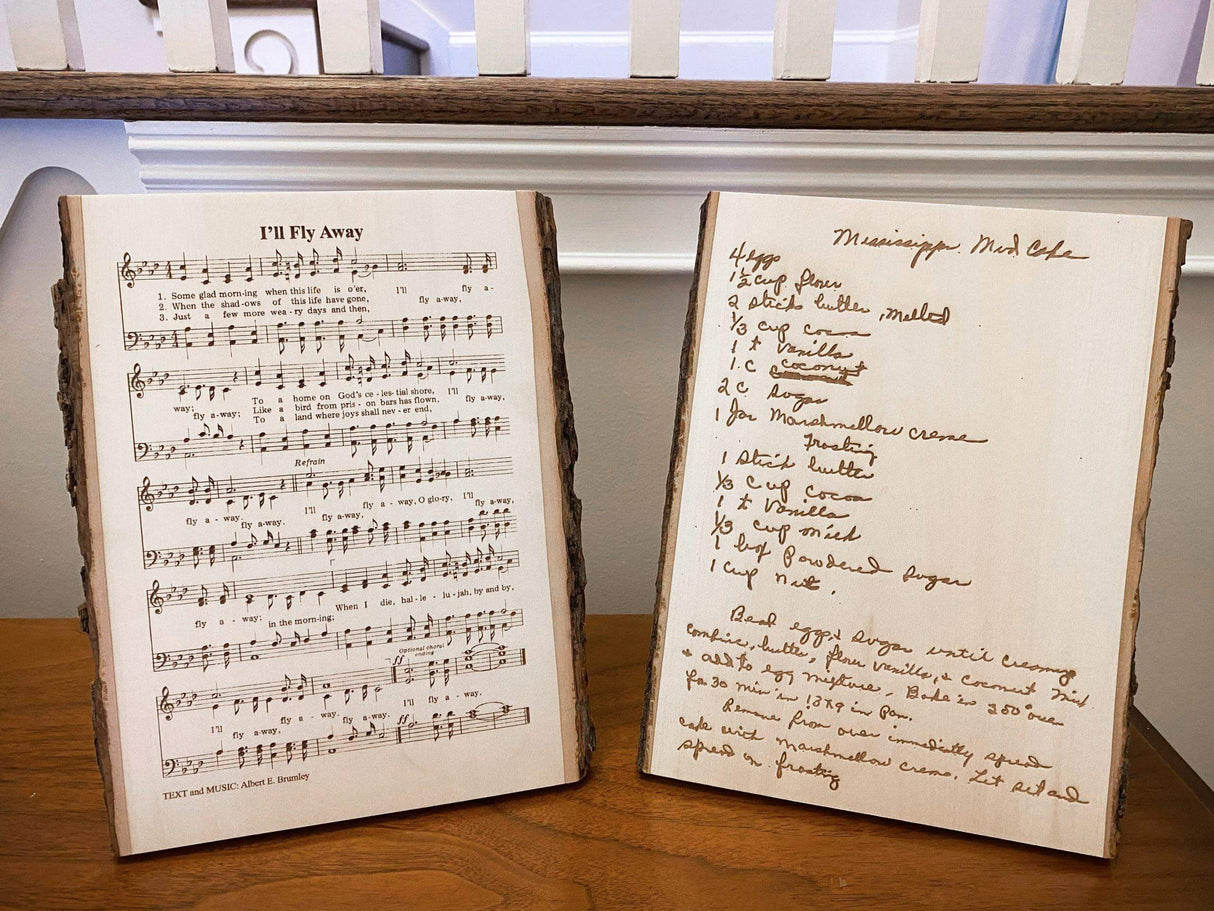 I'll Fly Away
1. Some glad morn-ing when this life is o'er, I'll fly a-
2. When the shad-ows of this life have gone, fly a-way,
3. Just a few more wea-ry days and then,
To a home on God's ce-les-tial shore, I'll fly a-way,
way; fly a-way; Like a bird from pris-on bars has flown, fly a-way,
To a land where joys shall nev-er end,
Refrain
fly a-way. fly a-way. I'll fly a-way, O glo-ry, I'll fly a-way,
When I die, hal-le-lu-jah, by and by,
fly a-way; in the morn-ing;
Optional choral
ending
ff
I'll fly a-way, fly a-way. fly a-way. I'll fly a-way.
ff
TEXT and MUSIC: Albert E. Brumley
Mississippi Mud Cake
4 eggs
1 1/2 cup flour
2 sticks butter, Melted
1/3 cup cocoa
1 t Vanilla
1 C coconut
2 C Sugar
1 jar Marshmellow creme
Frosting
1 stick butter
1/3 cup cocoa
1 t Vanilla
1/3 cup milk
1 box Powdered Sugar
1 cup nuts
Beat eggs & sugar until creamy
combine, butter, flour vanilla, & coconut mix
& add to egg mixture. Bake in 350° oven
for 30 min in 13x9 in Pan.
Remove from oven immediatly spread
cake with marshmellow creme. Let set and
spread on frosting